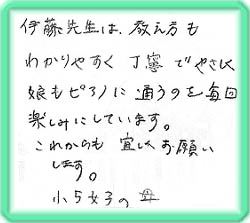 伊藤先生は、教え方も
わかりやすく丁寧でやさしく
娘もピアノに通うのを毎回
楽しみにしています。
これからも宜しくお願い
します。
小5女子の母